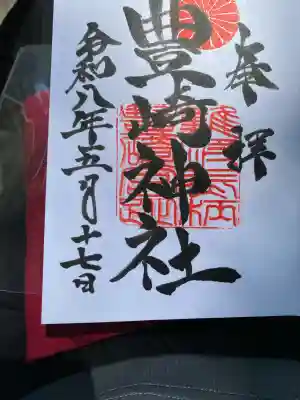 奉拝
豊崎神社
令和八年五月十七日